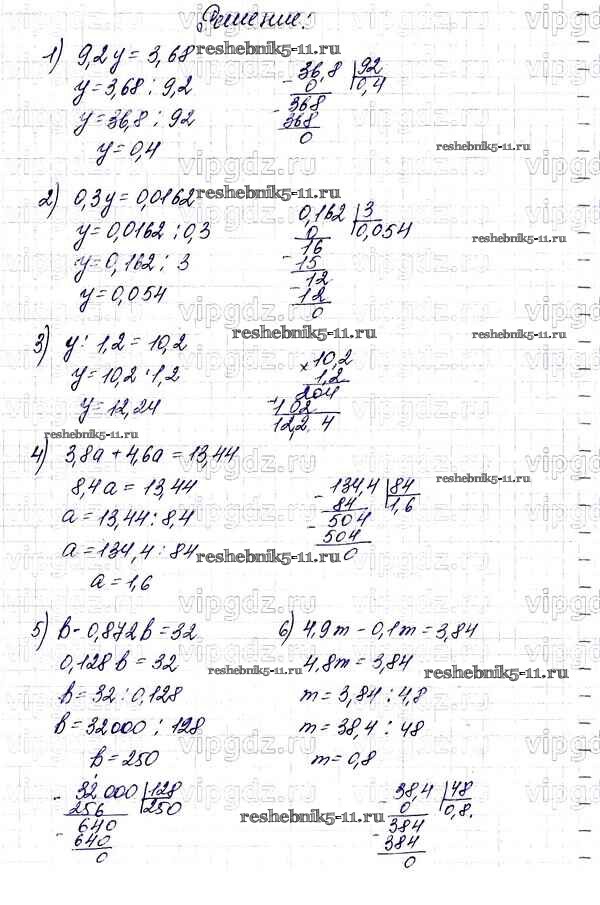 Решение:
reshebnik5-11.ru
1) 9,2y = 3,68
y = 3,68 : 9,2
y = 36,8 : 92
y = 0,4
36,8 | 92
0 | 0,4
368
368
0
reshebnik5-11.ru
2) 0,3y = 0,0162
reshebnik5-11.ru
y = 0,0162 : 0,3
y = 0,162 : 3
y = 0,054
0,162 | 3
0 | 0,054
16
15
12
12
0
reshebnik5-11.ru
reshebnik5-11.ru
3) y : 1,2 = 10,2
y = 10,2 · 1,2
y = 12,24
× 10,2
1,2
204
102
12,24
reshebnik5-11.ru
reshebnik5-11.ru
4) 3,8a + 4,6a = 13,44
8,4a = 13,44
a = 13,44 : 8,4
a = 134,4 : 84
a = 1,6
134,4 | 84
84 | 1,6
504
504
0
reshebnik5-11.ru
reshebnik5-11.ru
5) b - 0,872b = 32
0,128b = 32
b = 32 : 0,128
b = 32000 : 128
b = 250
32000 | 128
256 | 250
640
640
0
reshebnik5-11.ru
6) 4,9m - 0,1m = 3,84
4,8m = 3,84
m = 3,84 : 4,8
m = 38,4 : 48
m = 0,8
38,4 | 48
0 | 0,8.
384
384
0
reshebnik5-11.ru
reshebnik5-11.ru
vipgdz.ru